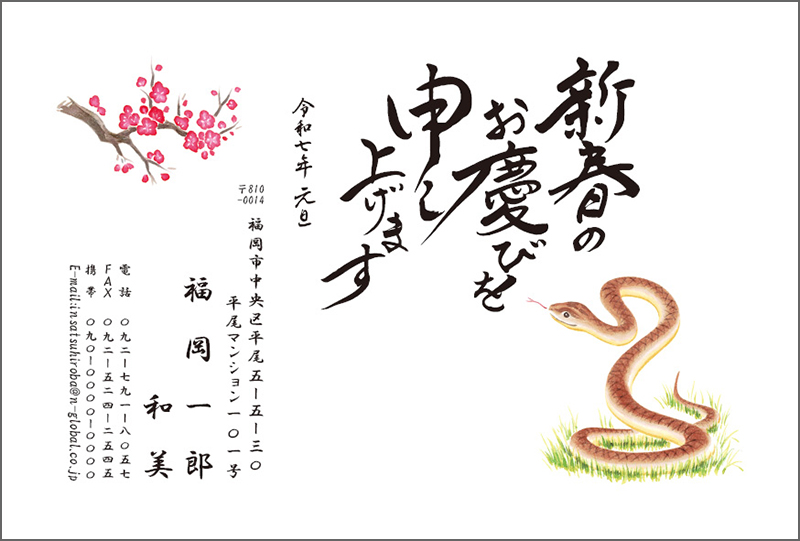 新春の
お慶びを
申し
上げます
令和七年 元旦
〒810
-0014
福岡市中央区平尾五－五－三〇
平尾マンション一〇一号
福岡一郎
和美
電話 〇九二－七九一－八〇五七
FAX 〇九二－五二四－二五四五
携帯 〇九〇－〇〇〇〇－〇〇〇〇
E-mail:insatsuhiroba@n-global.co.jp